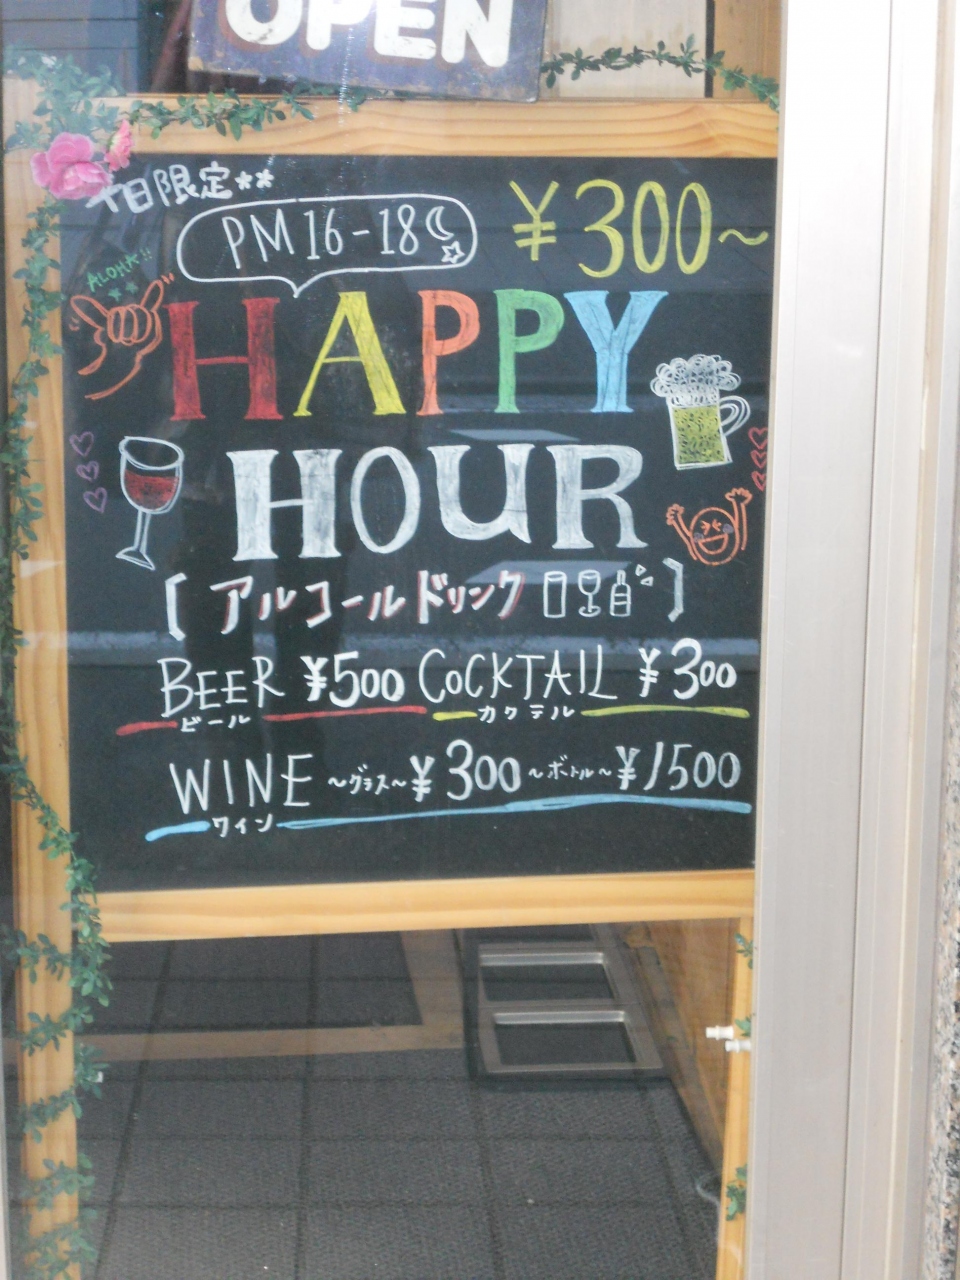 OPEN
日限定**
PM 16-18
¥300~
ALOHA!!
HAPPY
HOUR
[アルコールドリンク]
BEER ¥500 COCKTAIL ¥300
ビール カクテル
WINE ~グラス~ ¥300 ~ボトル~ ¥1500
ワイン